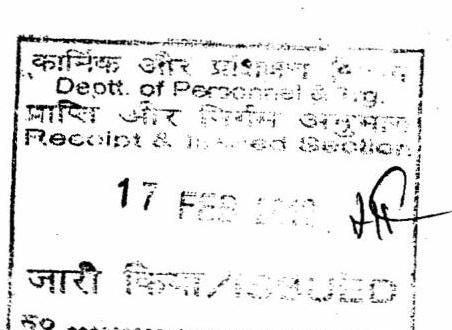 कार्मिक और प्रशिक्षण विभाग
Deptt. of Personnel & Trg.
प्राप्ति और निर्गम अनुभाग
Receipt & Issued Section
17 FEB
जारी किया/ISSUED
सं०